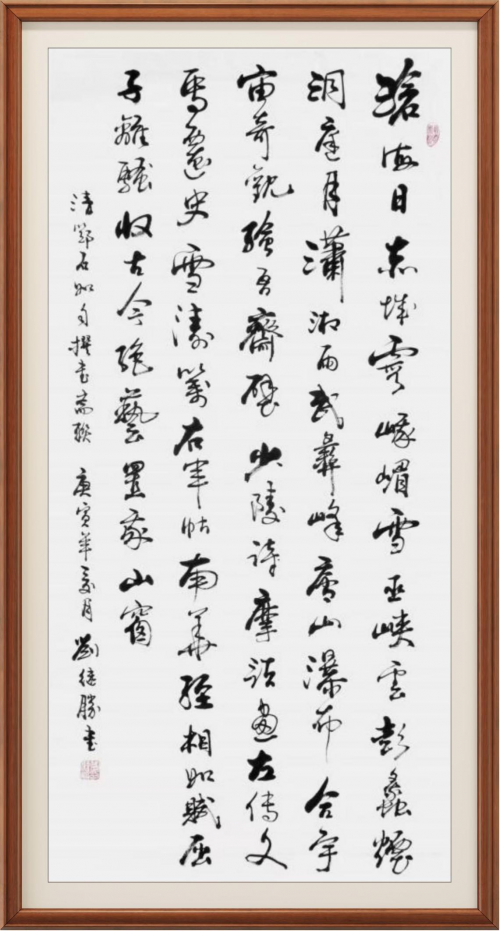 滄海日赤城霞峨嵋雪巫峽雲彭蠡煙
洞庭月瀟湘雨武彝峰廬山瀑布合宇
宙奇觀繪吾齋壁少陵詩摩詰畫左傳文
馬遷史雪濤箋右軍帖南華經相如賦屈
子離騷收古今絕藝置我山窗
清鄧石如自撰書齋聯 庚寅年夏月 劉继勝書